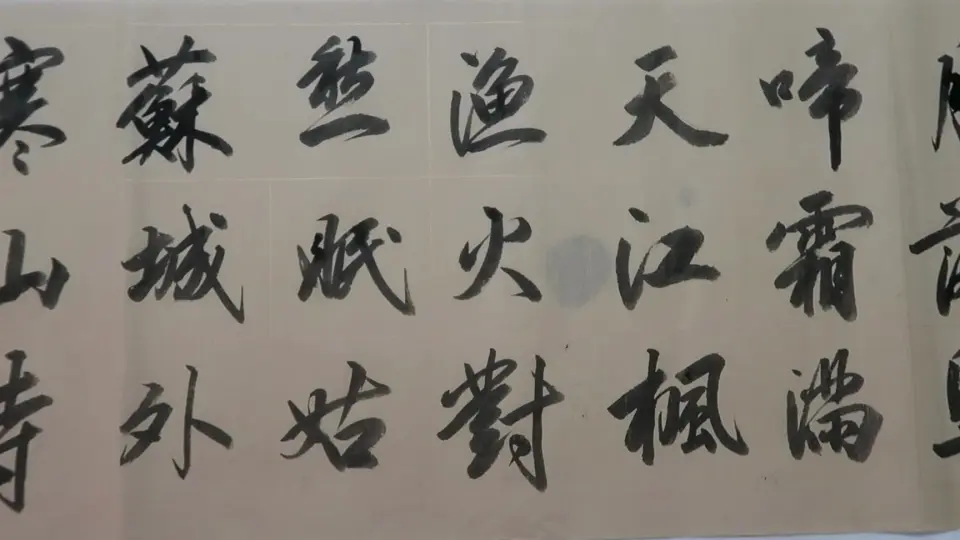 月落烏
啼霜滿
天江楓
漁火對
愁眠姑
蘇城外
寒山寺